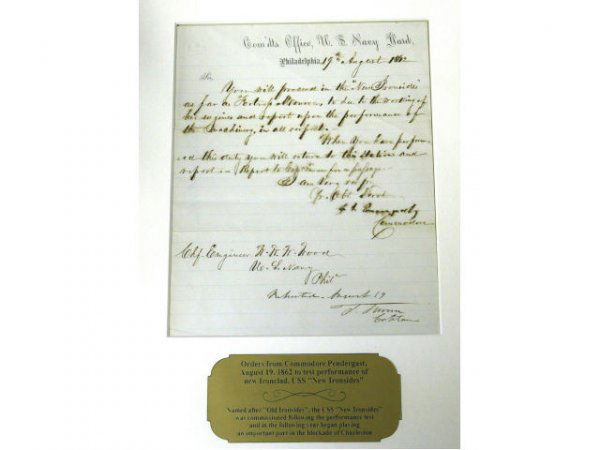 Com'dts Office, U. S. Navy Yard,
Philadelphia, 19th August 1862
Sir
You will proceed in the "New Ironsides"
as far as Fortress Monroe, to the working of
her engines and report upon the performance of
the machinery, in all respects.
When you have perform-
ed this duty you will return to this Station and
report. Report to Capt Turner for a passage
I am Very resp
Yr Obt Servt
Commodore
Chf. Engineer W. W. W. Wood
U. S. Navy
Phila
Reported August 19
T. Turner
Captain
Orders from Commodore Pendergast,
August 19, 1862 to test performance of
new Ironclad, USS "New Ironsides"
Named after "Old Ironsides", the USS "New Ironsides"
was commissioned following the performance test
and in the following year began playing
an important part in the blockade of Charleston